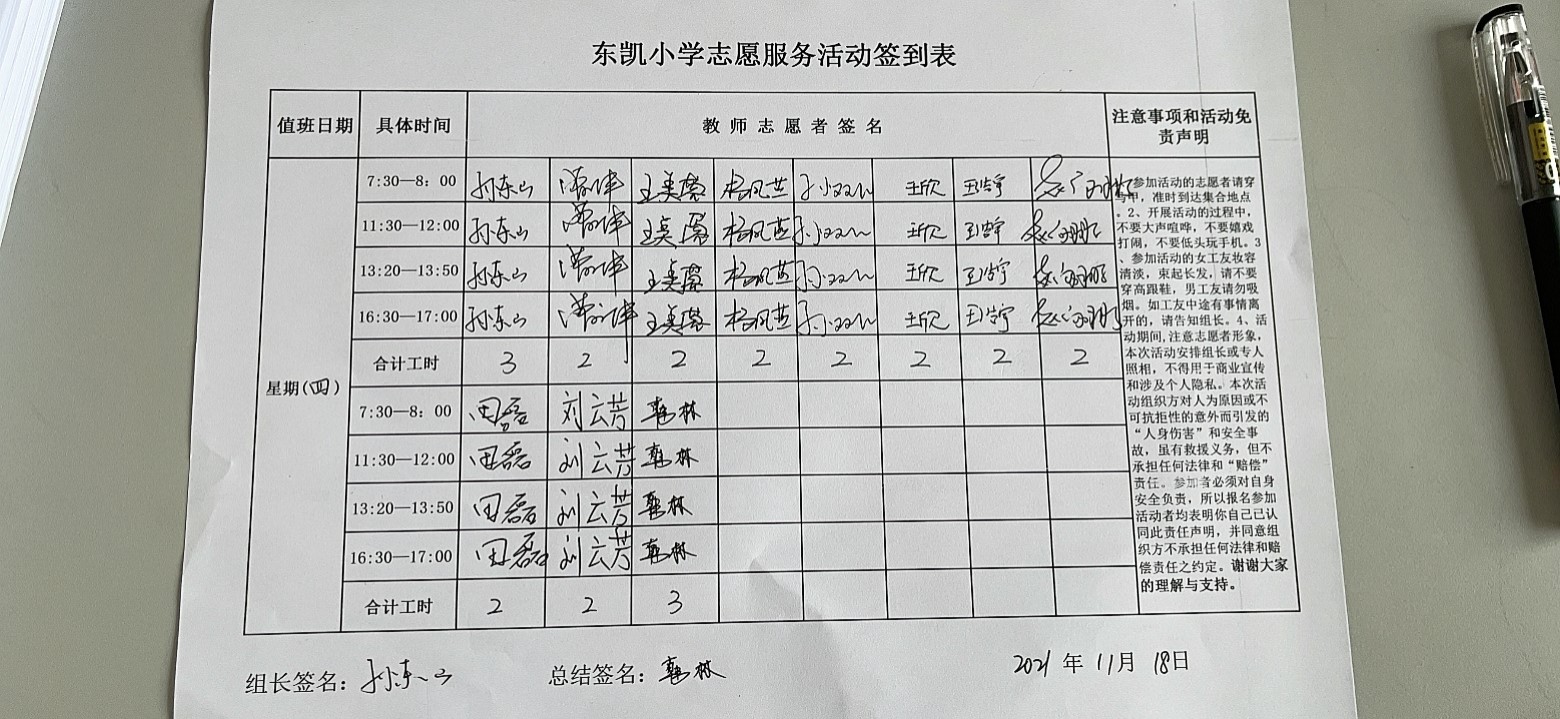 东凯小学志愿服务活动签到表
值班日期 具体时间 教师志愿者签名 注意事项和活动免
责声明
星期(四)
7:30—8：00 孙东山 王美蓉 杨凤芝 王欣 王浩宇
11:30—12:00 孙东山 王美蓉 杨凤芝 王欣 王浩宇
13:20—13:50 孙东山 王美蓉 杨凤芝 王欣 王浩宇
16:30—17:00 孙东山 王美蓉 杨凤芝 王欣 王浩宇
合计工时 3 2 2 2 2 2 2 2
7:30—8：00 田磊 刘云芳 韩林
11:30—12:00 田磊 刘云芳 韩林
13:20—13:50 田磊 刘云芳 韩林
16:30—17:00 田磊 刘云芳 韩林
合计工时 2 2 3
参加活动的志愿者请穿
马甲，准时到达集合地点
。2、开展活动的过程中，
不要大声喧哗，不要嬉戏
打闹，不要低头玩手机。3
、参加活动的女工友妆容
清淡，束起长发，请不要
穿高跟鞋，男工友请勿吸
烟。如工友中途有事情离
开的，请告知组长。4、活
动期间，注意志愿者形象，
本次活动安排组长或专人
照相，不得用于商业宣传
和涉及个人隐私。本次活
动组织方对人为原因或不
可抗拒性的意外而引发的
“人身伤害”和安全事
故，虽有救援义务，但不
承担任何法律和“赔偿”
责任。参加者必须对自身
安全负责，所以报名参加
活动者均表明你自己已认
同此责任声明，并同意组
织方不承担任何法律和赔
偿责任之约定。谢谢大家
的理解与支持。
组长签名：孙东山 总结签名：韩林 2021 年 11月 18日